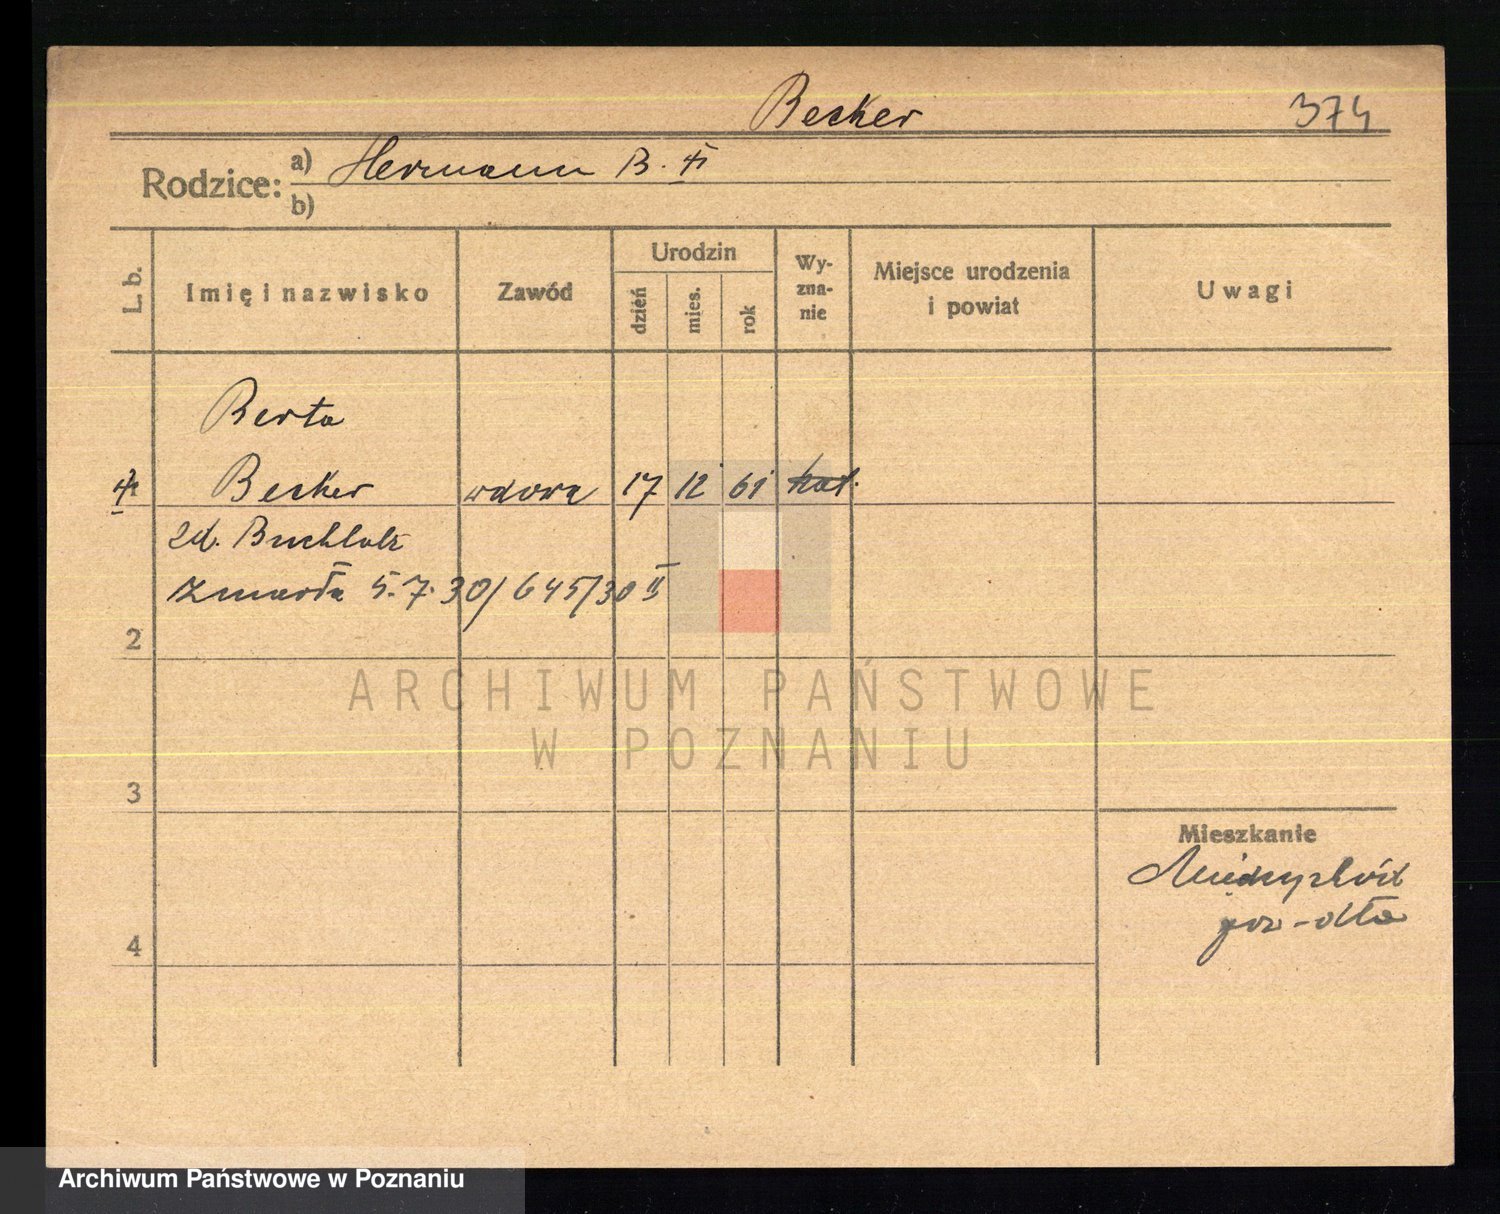 Becker 374
Rodzice: a) Hermann B.
b)
L. b. Imię i nazwisko Zawód Urodzin dzień mies. rok Wy-zna-nie Miejsce urodzenia i powiat Uwagi
Berta
Becker wdowa 17 12 61 kat.
zd. Buchholz
zmarła 5.7.30/645/30 II
2
ARCHIWUM PAŃSTWOWE
W POZNANIU
3
Mieszkanie
Międzychód
4
Archiwum Państwowe w Poznaniu